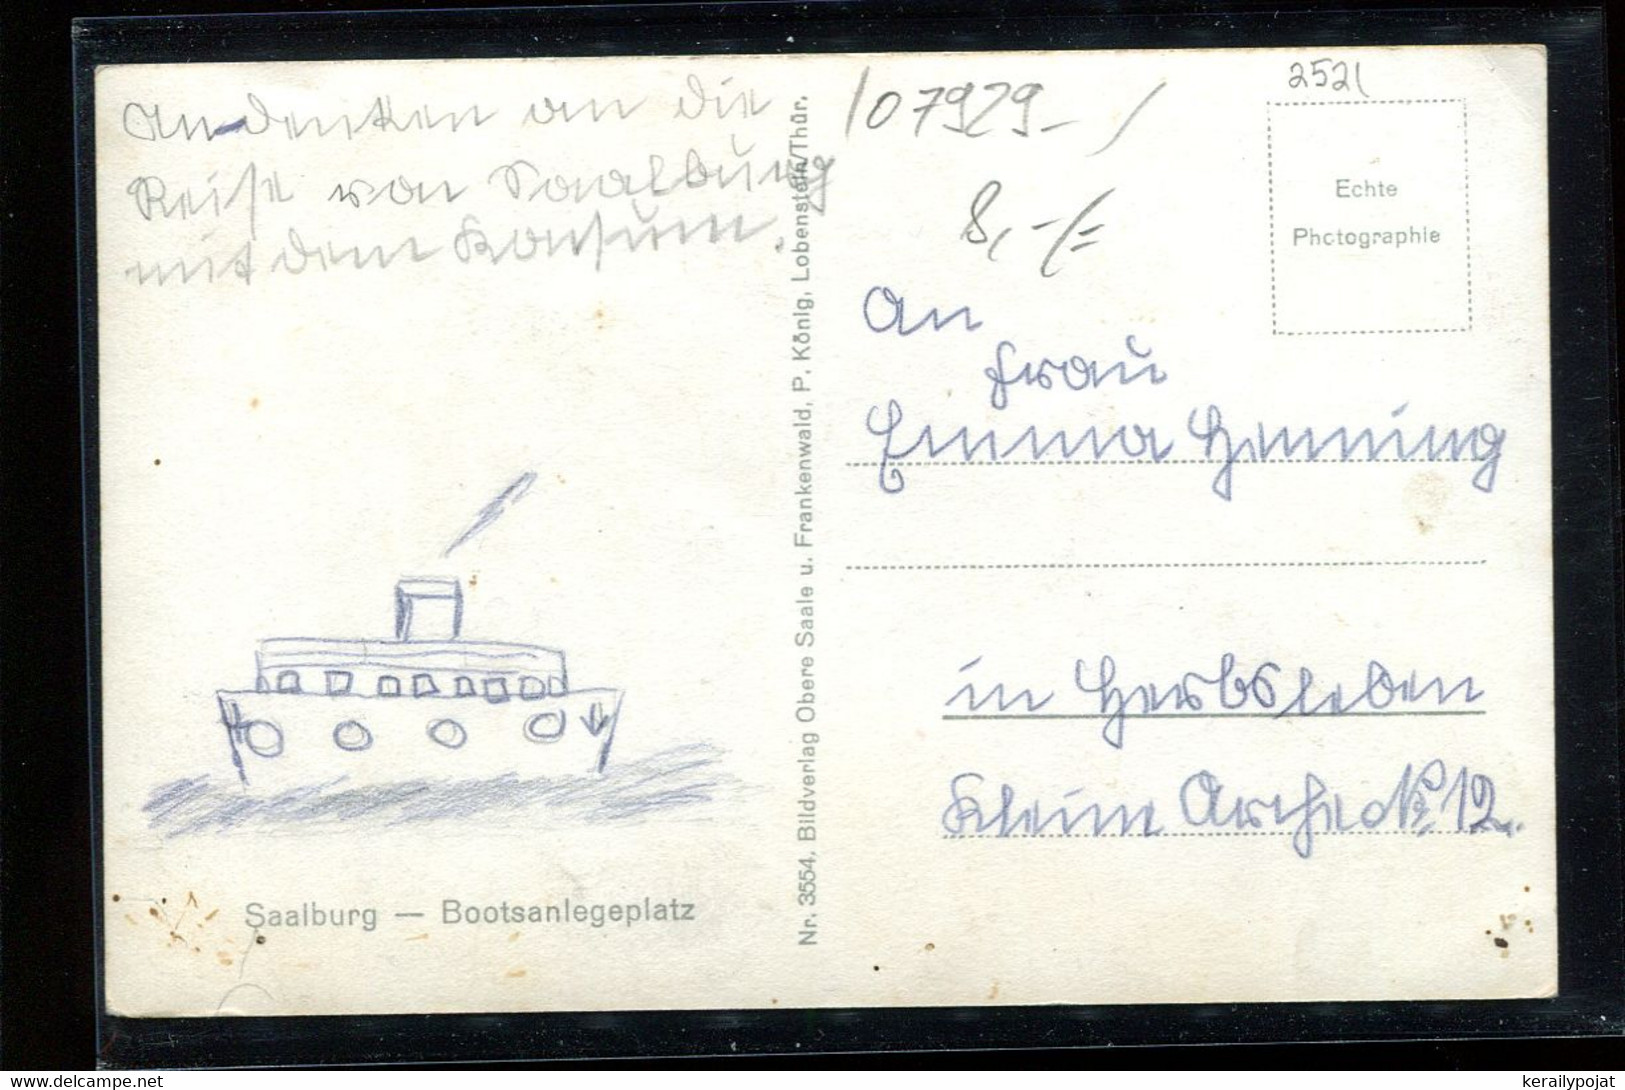 Andenken an die
Reise von Saalburg
mit dem Konsum.
Saalburg — Bootsanlegeplatz
Nr. 3554, Bildverlag Obere Saale u. Frankenwald, P. König, Lobenstein/Thür.
107929-/
8,-/=
2521
Echte
Photographie
An
Frau
Emma Henning
in Herbsleben
Klein 12
delcampe.net
kerailypojat